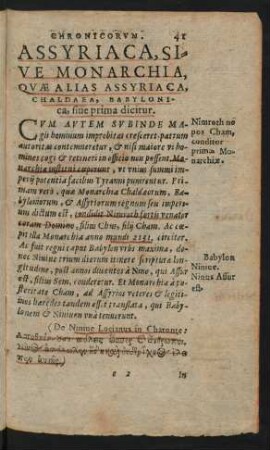 CHRONICORVM. 41
ASSYRIACA, SI-
VE MONARCHIA,
QVÆ ALIAS ASSYRIACA,
CHALDAEA, BABYLONI-
ca, siue prima dicitur.
CVM AVTEM SVBINDE MA-
gis hominum improbitas cresceret, patrum
autoritas contemneretur, & nisi maiore vi ho-
mines cogi & retineri in officio non possent, Mo-
narchia institui
perij potentia facilius Tyranni punirentur. Pri-
mam verò, qua Monarchia Chaldæorum, Ba-
byloniorum, & Assyriorum regnum seu imperi-
um dictum est, condidit Nimroth fortis venator
coram Domino, filius Chus, filij Cham. Ac cœ-
pit illa Monarchia anno mundi circiter.
Ac fuit regni caput Babylon vrbs maxima, do-
nec Niniue trium dierum itinere
longitudine, post annos à Nino, qui Assur
est, filius Sem, conderetur. Et Monarchia à po-
steritate Cham, ad Assyrios veteres & legiti-
mos hæredes tandem esset translata, qui Baby-
lonem & Niniuen vnà tenuerunt.
(De Niniue Lucianus in Charonte:
e 2 In
Nimroth ne
pos Cham,
conditor
primæ Mo-
narchiæ.
Babylon
Niniue.
Ninus Assur
est.